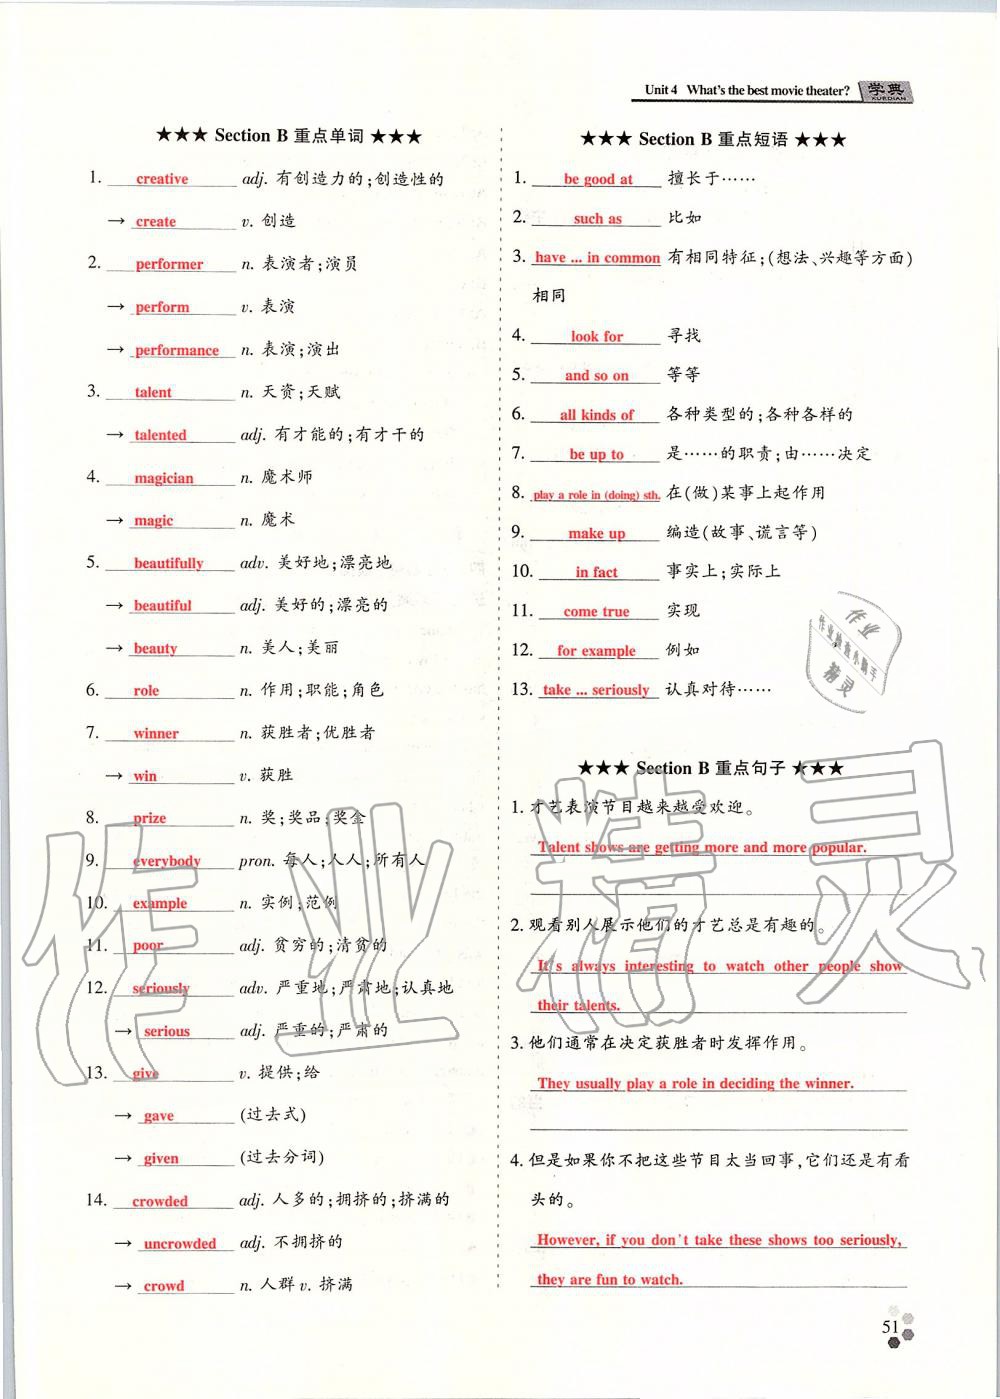 Unit 4 What's the best movie theater? 学典
XUEDIAN
★★★ Section B 重点单词 ★★★
1. creative adj. 有创造力的;创造性的
→ create v. 创造
2. performer n. 表演者;演员
→ perform v. 表演
→ performance n. 表演;演出
3. talent n. 天资;天赋
→ talented adj. 有才能的;有才干的
4. magician n. 魔术师
→ magic n. 魔术
5. beautifully adv. 美好地;漂亮地
→ beautiful adj. 美好的;漂亮的
→ beauty n. 美人;美丽
6. role n. 作用;职能;角色
7. winner n. 获胜者;优胜者
→ win v. 获胜
8. prize n. 奖;奖品;奖金
9. everybody pron. 每人;人人;所有人
10. example n. 实例;范例
11. poor adj. 贫穷的;清贫的
12. seriously adv. 严重地;严肃地;认真地
→ serious adj. 严重的;严肃的
13. give v. 提供;给
→ gave (过去式)
→ given (过去分词)
14. crowded adj. 人多的;拥挤的;挤满的
→ uncrowded adj. 不拥挤的
→ crowd n. 人群 v. 挤满
★★★ Section B 重点短语 ★★★
1. be good at 擅长于……
2. such as 比如
3. have ... in common 有相同特征;(想法、兴趣等方面)
相同
4. look for 寻找
5. and so on 等等
6. all kinds of 各种类型的;各种各样的
7. be up to 是……的职责;由……决定
8. play a role in (doing) sth. 在(做)某事上起作用
9. make up 编造(故事、谎言等)
10. in fact 事实上;实际上
11. come true 实现
12. for example 例如
13. take ... seriously 认真对待……
作业
作业检查小助手
精灵
★★★ Section B 重点句子 ★★★
1. 才艺表演节目越来越受欢迎。
Talent shows are getting more and more popular.
2. 观看别人展示他们的才艺总是有趣的。
It's always interesting to watch other people show
their talents.
3. 他们通常在决定获胜者时发挥作用。
They usually play a role in deciding the winner.
4. 但是如果你不把这些节目太当回事,它们还是有看
头的。
However, if you don't take these shows too seriously,
they are fun to watch.
作业精灵
51